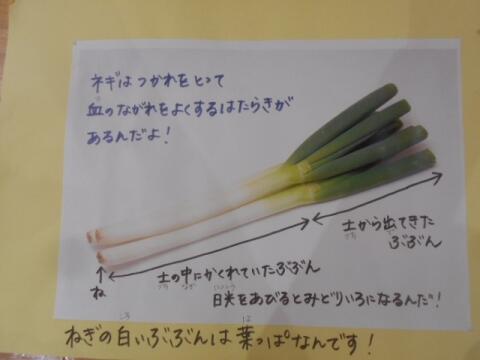 ネギは つかれをとって
血のながれをよくするはたらきが
あるんだよ！
土から出てきた
ぶぶん
ね
土の中にかくれていたぶぶん
日光をあびるとみどりいろになるんだ！
ねぎの白いぶぶんは葉っぱなんです！